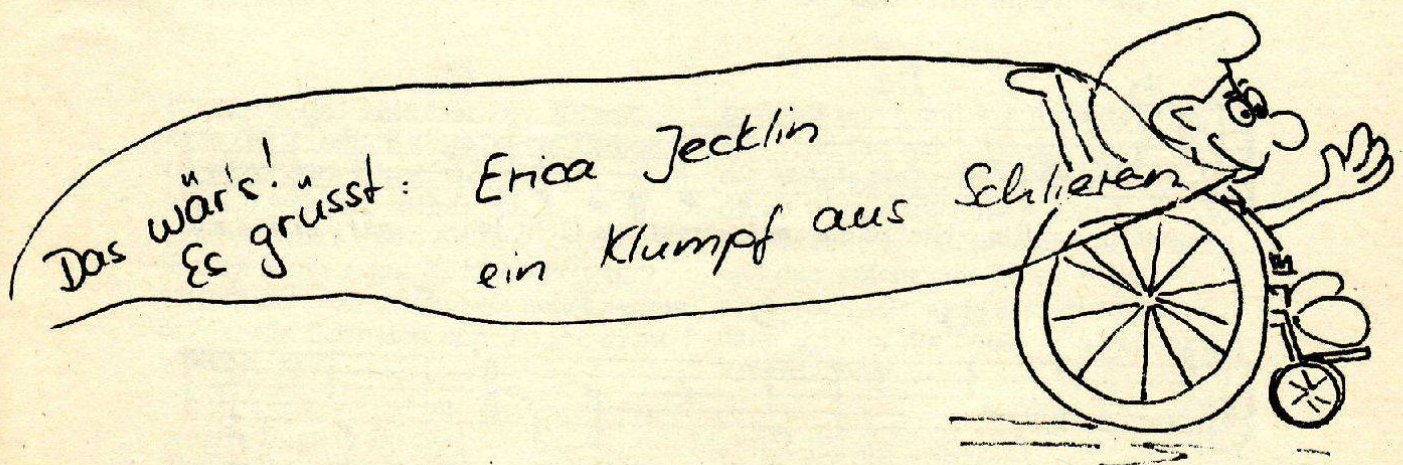 Das wär's!
Es grüsst: Erica Jecklin
ein Klumpf aus Schlieren